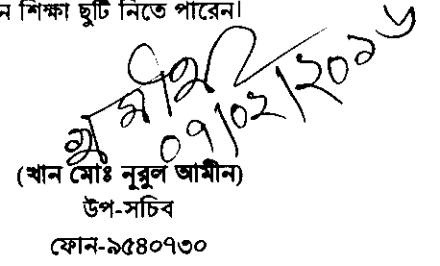 ন শিক্ষা ছুটি নিতে পারেন।
০৭/০২/২০১৬
(খান মোঃ নূরুল আমীন)
উপ-সচিব
ফোন-৯৫৪০৭৩০